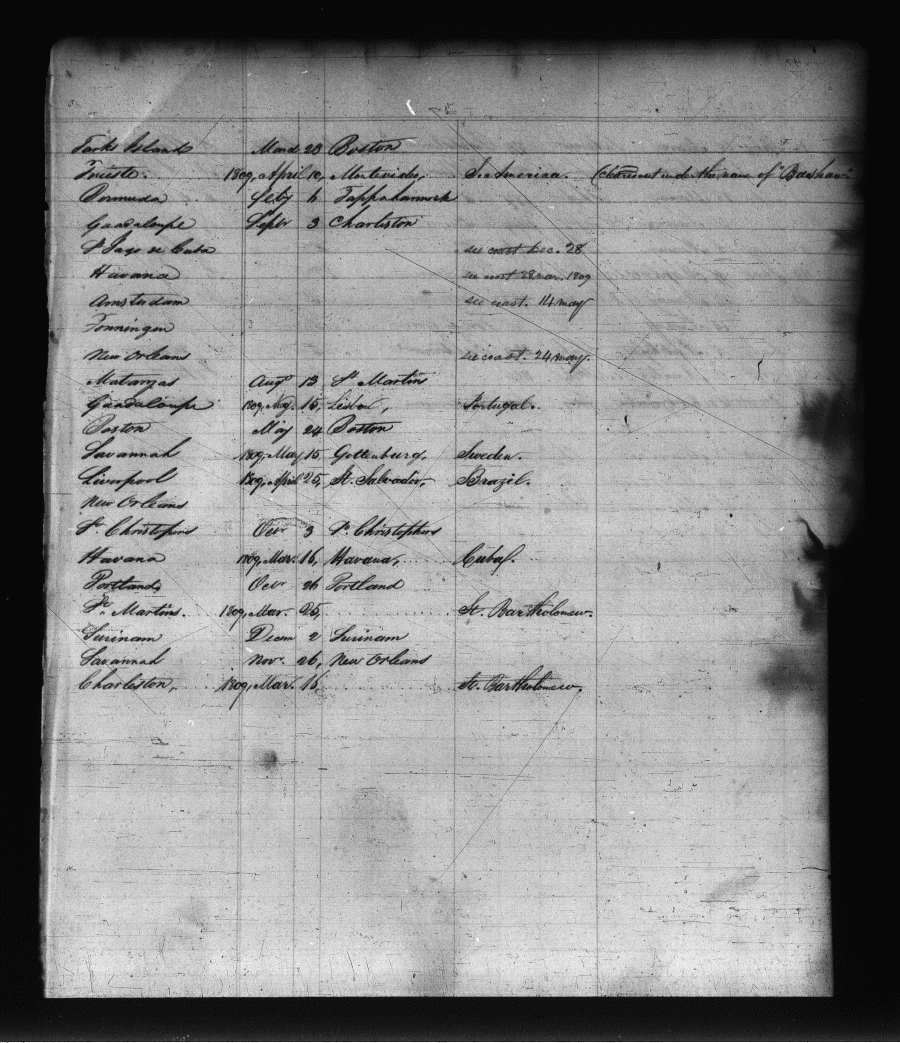 Turks Island March 23 Boston
Trieste. 1809, April 10, Montevideo, So. America. (cleared out under the name of "Bashaw"
Bermuda Feby 6 Tappahannock
Guadaloupe Septr 3 Charleston
St Jago de Cuba see coast Dec. 28
Havana see coast 28 mar. 1809
Amsterdam see coast. 14 may
Tonningen
New Orleans see coast. 24 may.
Matanzas Augt 13 St Martins
Guadaloupe 1809, Aug. 15, Lisbon, Portugal.
Boston May 24 Boston
Savannah 1809, May 15 Gottenburg, Sweden.
Liverpool 1809, April 25, St. Salvador, Brazil.
New Orleans
St Christophers Octr 3 St Christophers
Havana 1809, Mar. 16, Havana, Cuba.
Portland, Octr 26 Portland
St. Martins. 1809, Mar. 25, St. Bartholomew.
Surinam Decm 2 Surinam
Savannah Nov. 26, New Orleans
Charleston, 1809, Mar. 15, St. Bartholomew.